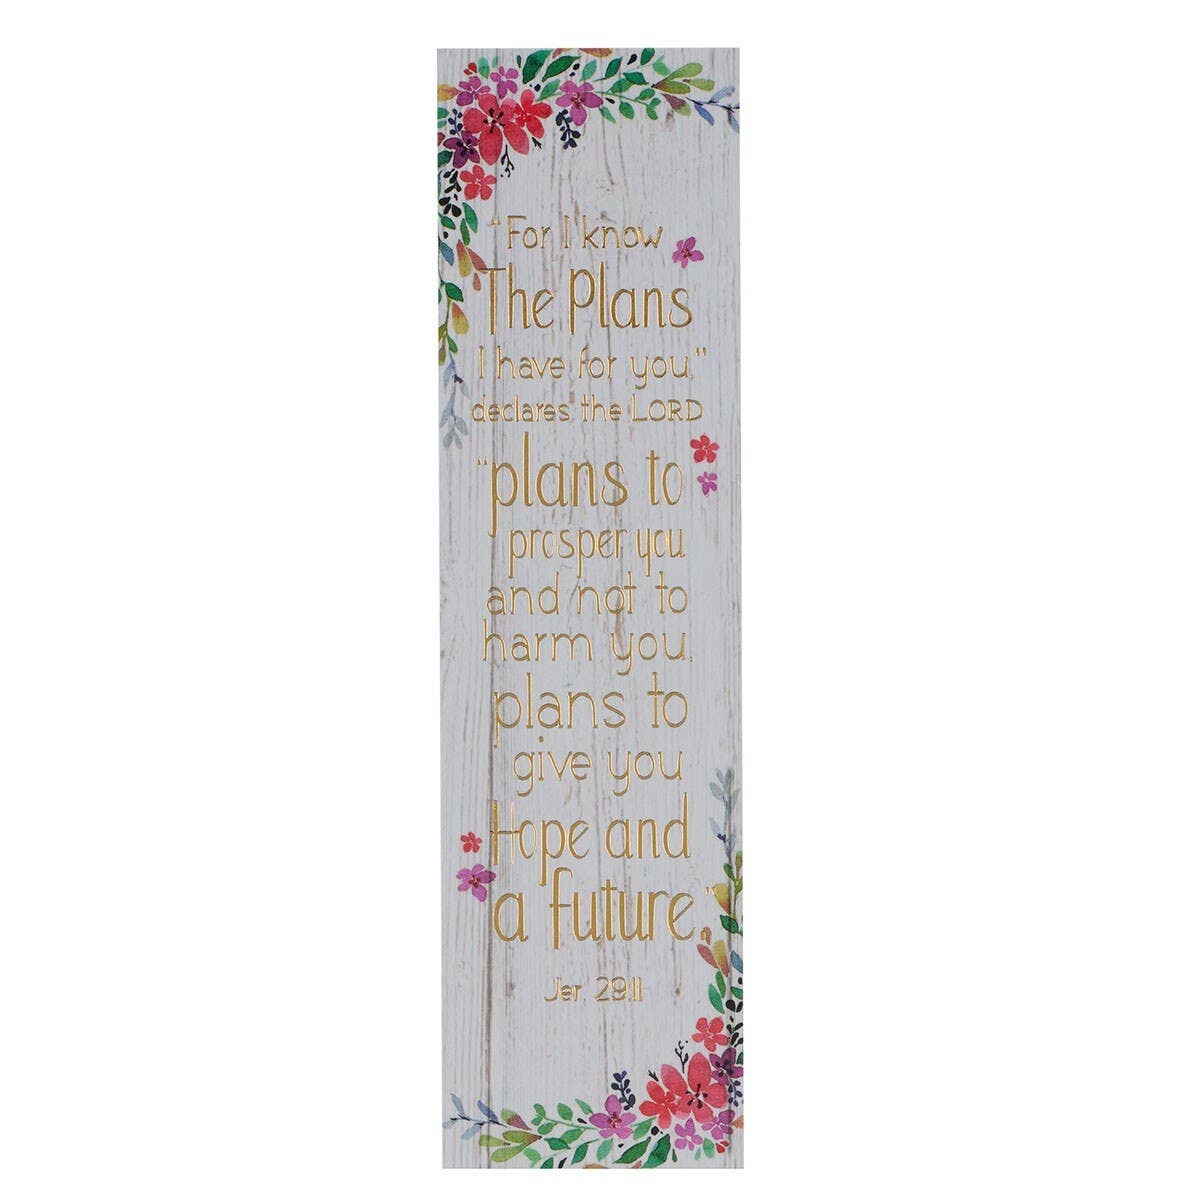 "For I know
The Plans
I have for you,"
declares the LORD
"plans to
prosper you
and not to
harm you,
plans to
give you
Hope and
a future."
Jer. 29:11